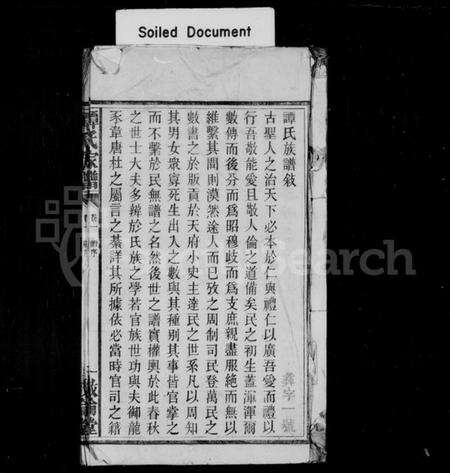 Soiled Document
譚氏族譜敘
古聖人之治天下必本於仁與禮仁以廣吾愛而禮以
行吾敬能愛且敬人倫之道備矣民之初生蓋渾渾爾
數傳而後分而爲昭穆歧而爲支庶親盡服絶而無以
維繫其間則漠然途人而已攷之周制司民登萬民之
數書之於版貢於天府小史主達民之世系凡以周知
其男女衆寡死生出入之數與其種別其事皆官掌之
而不擊於民無譜之名然後世之譜實權輿於此春秋
之世士大夫多辨於氏族之學若官族世功與夫御龍
豕韋唐杜之屬言之綦詳其所據依必當時官司之籍
彝字一號
氏家譜
卷一
一
堂
Search